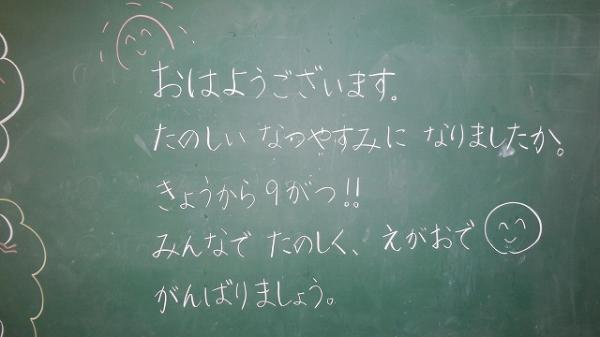 おはようございます。
たのしい なつやすみに なりましたか。
きょうから 9がつ!!
みんなで たのしく、えがおで
がんばりましょう。